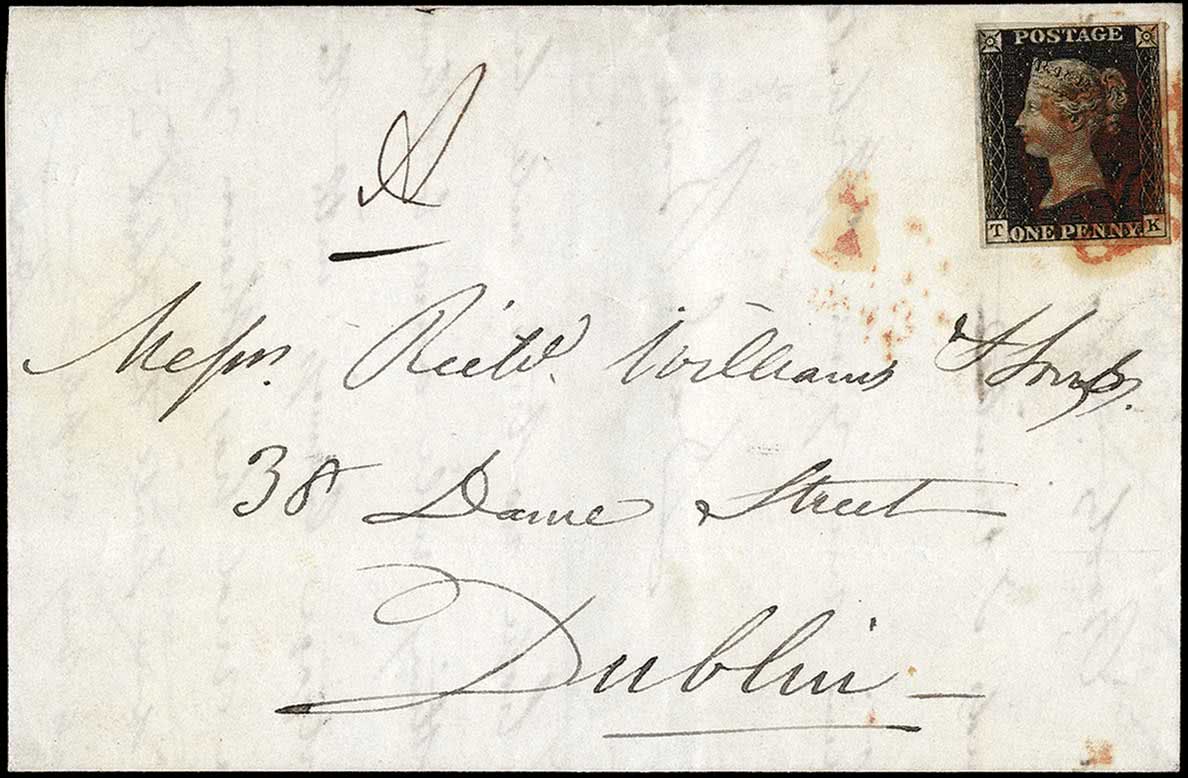 POSTAGE
T ONE PENNY. K
A
Messrs. Richd. Williams &
38 Dame Street
Dublin